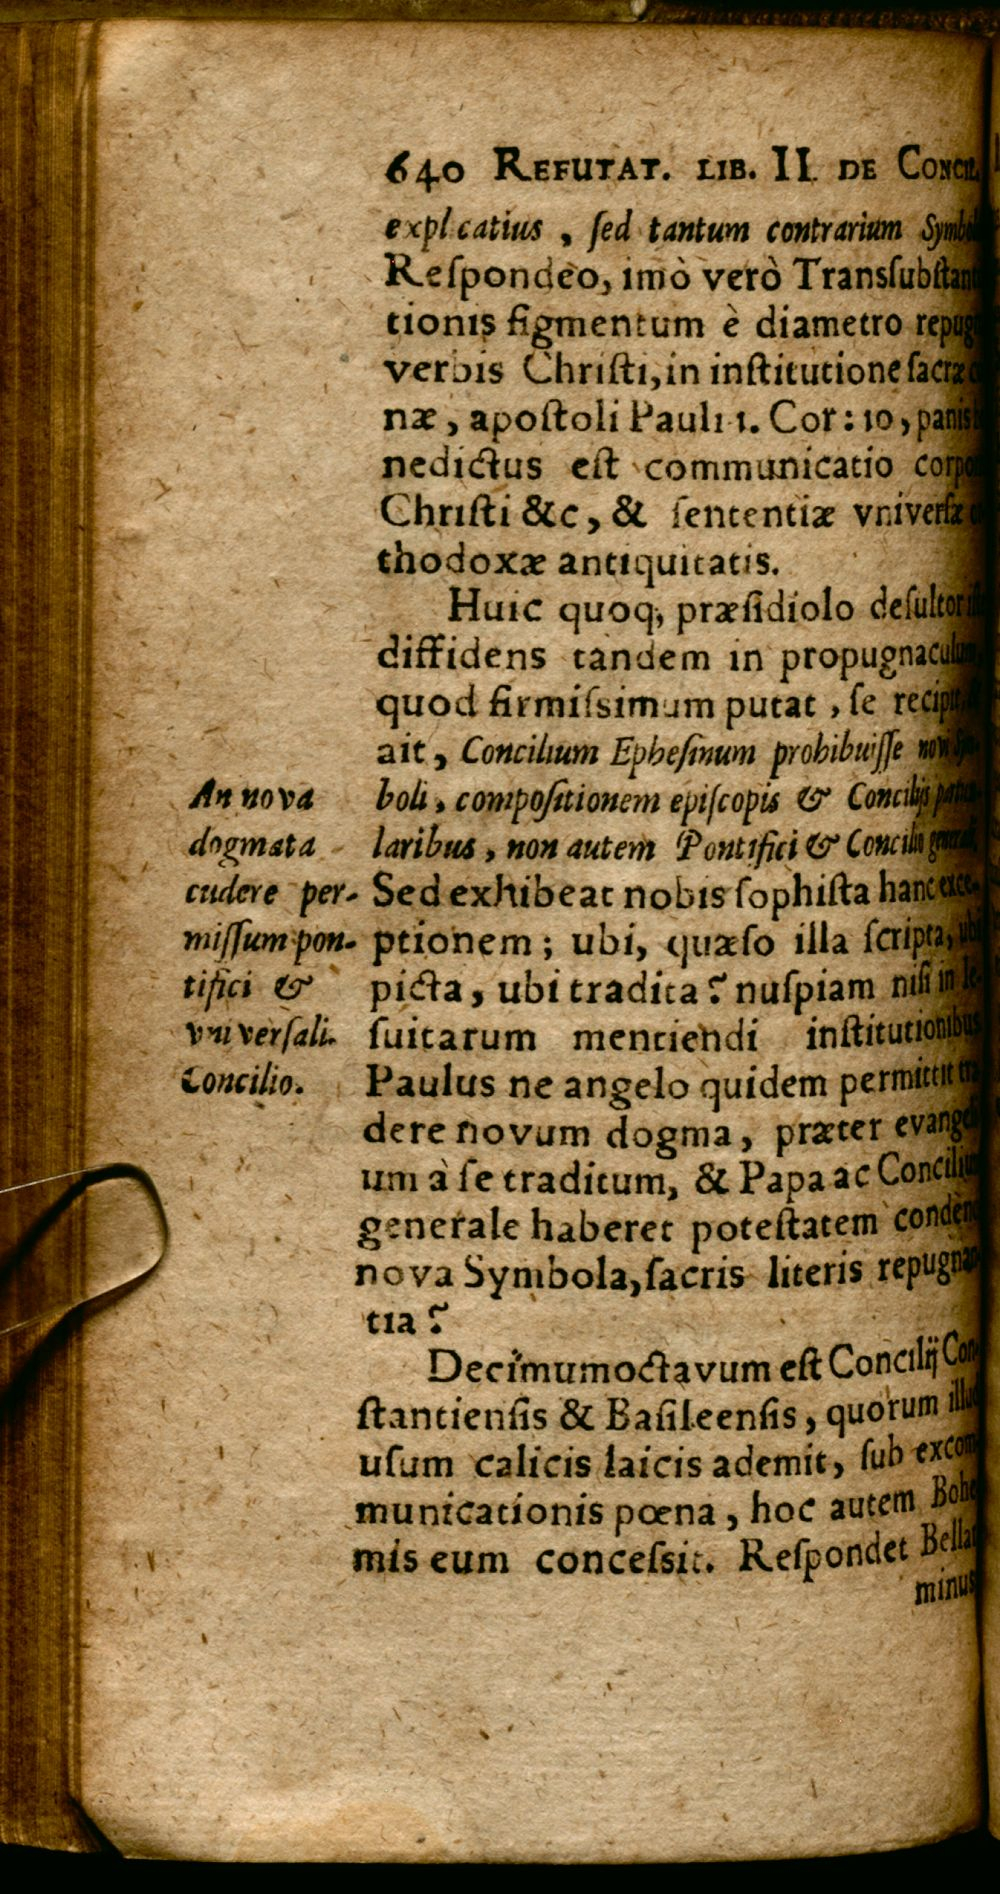 640 REFUTAT. LIB. II. DE CONCIL.
explicatius, sed tantum contrarium Symbol
Reſpondeo, imò verò Transſubſtant
tionis figmentum è diametro repug
verbis Chriſti, in inſtitutione ſacræ
næ, apoſtoli Pauli 1. Cor: 10, panis
nedictus eſt communicatio corpo
Chriſti &c, & ſententiæ vniverſæ
thodoxæ antiquitatis.
Huic quoq; præſidiolo deſultor
diffidens tandem in propugnaculum,
quod firmiſsimum putat, ſe recipit,
ait, Concilium Epheſinum prohibuiſſe novi Sym-
boli, compoſitionem epiſcopis & Concilijs particu-
laribus, non autem Pontifici & Concilio generali,
Sed exhibeat nobis ſophiſta hanc exce-
ptionem; ubi, quæſo illa ſcripta, ubi
picta, ubi tradita? nuſpiam niſi in Ie-
ſuitarum mentiendi inſtitutionibus
Paulus ne angelo quidem permittit tra
dere novum dogma, præter evangeli
um à ſe traditum, & Papa ac Concilium
generale haberet poteſtatem condēn
nova Symbola, ſacris literis repugnan-
tia?
An nova
dogmata
cudere per-
miſſum pon-
tifici &
vniverſali.
Concilio.
Decimumoctavum eſt Concilij Con-
ſtantienſis & Baſileenſis, quorum illud
uſum calicis laicis ademit, ſub excom
municationis pœna, hoc autem Bohe
mis eum conceſsit. Reſpondet Bellar
minus